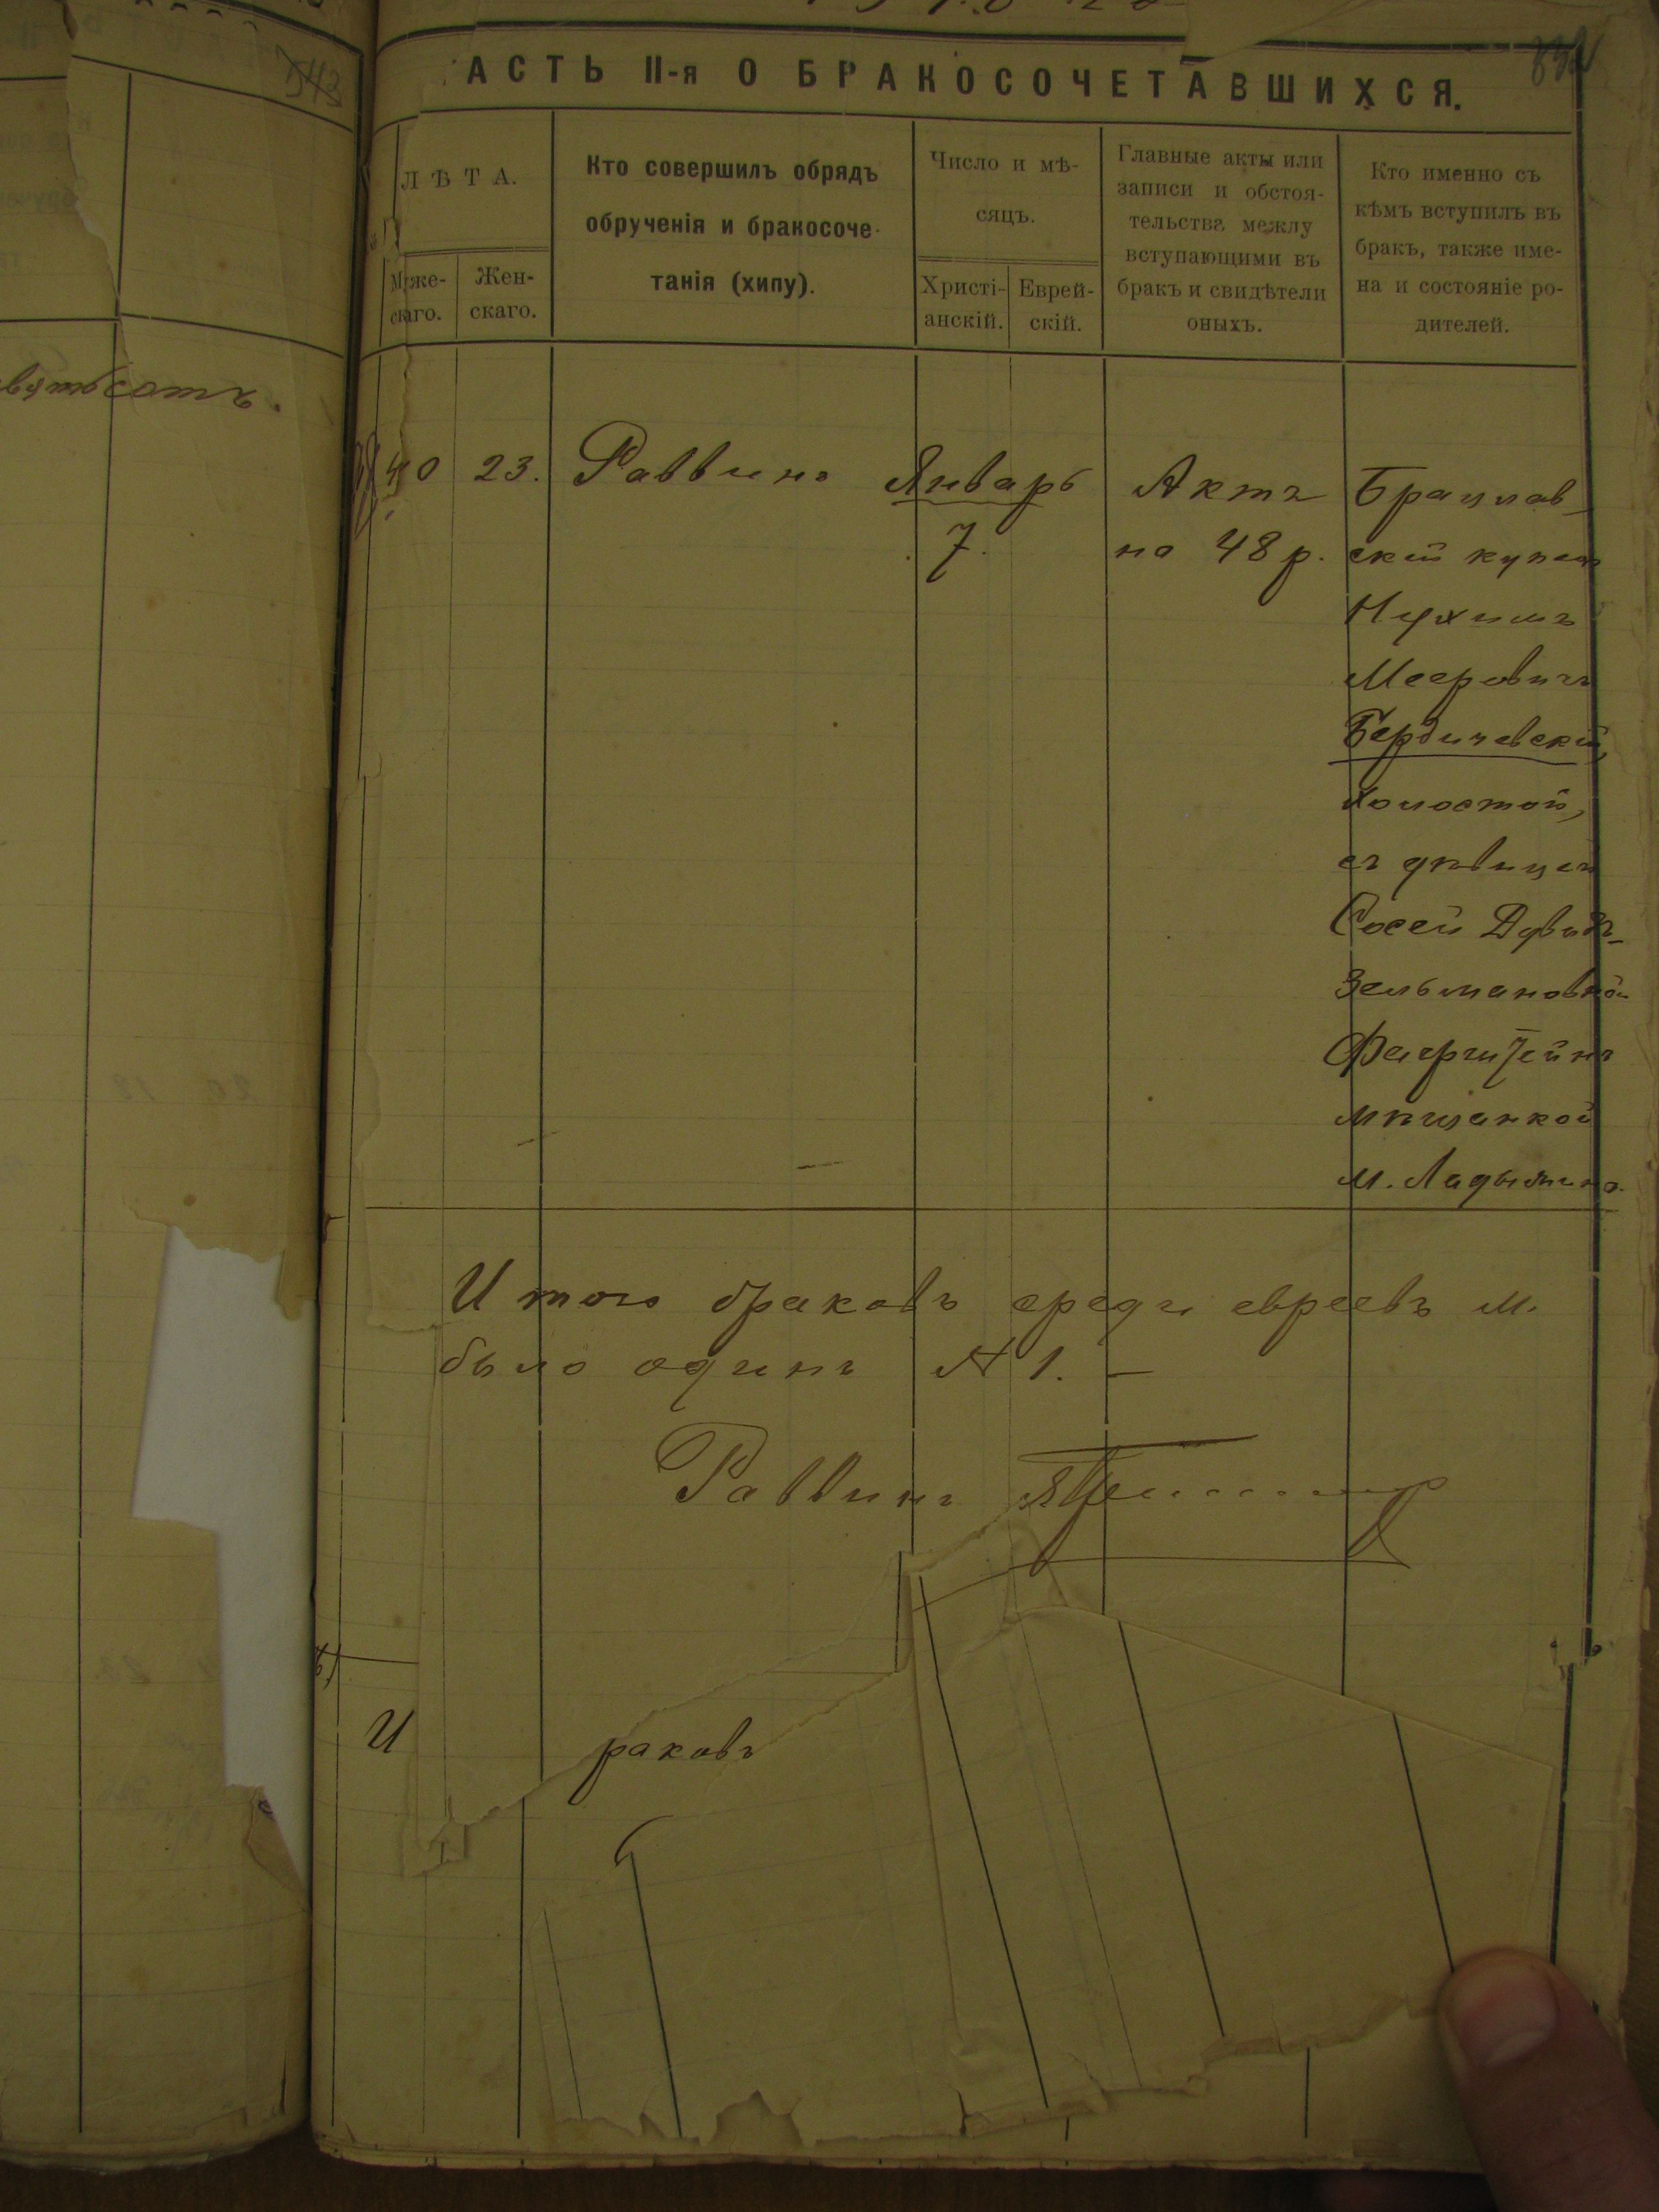 АСТЬ II-я О БРАКОСОЧЕТАВШИХСЯ.
ЛѢТА.
Муже-
скаго.
Жен-
скаго.
Кто совершилъ обрядъ
обрученія и бракосоче-
танія (хипу).
Число и мѣ-
сяцъ.
Христі-
анскій.
Еврей-
скій.
Главные акты или
записи и обстоя-
тельства между
вступающими въ
бракъ и свидѣтели
оныхъ.
Кто именно съ
кѣмъ вступилъ въ
бракъ, также име-
на и состояніе ро-
дителей.
40
23.
Раввинъ
Январь
7.
Актъ
на 48 р.
Брацлав-
скій купец
Нухимъ
Мееровичъ
Бердичевскій,
холостой,
съ дѣвицей
Сосей Дувидъ-
Зельмановной
Фаерштейнъ
мѣщанкой
м. Ладыжина.
Итого браковъ среди евреевъ м.
было одинъ № 1. —
Раввинъ
И раковъ